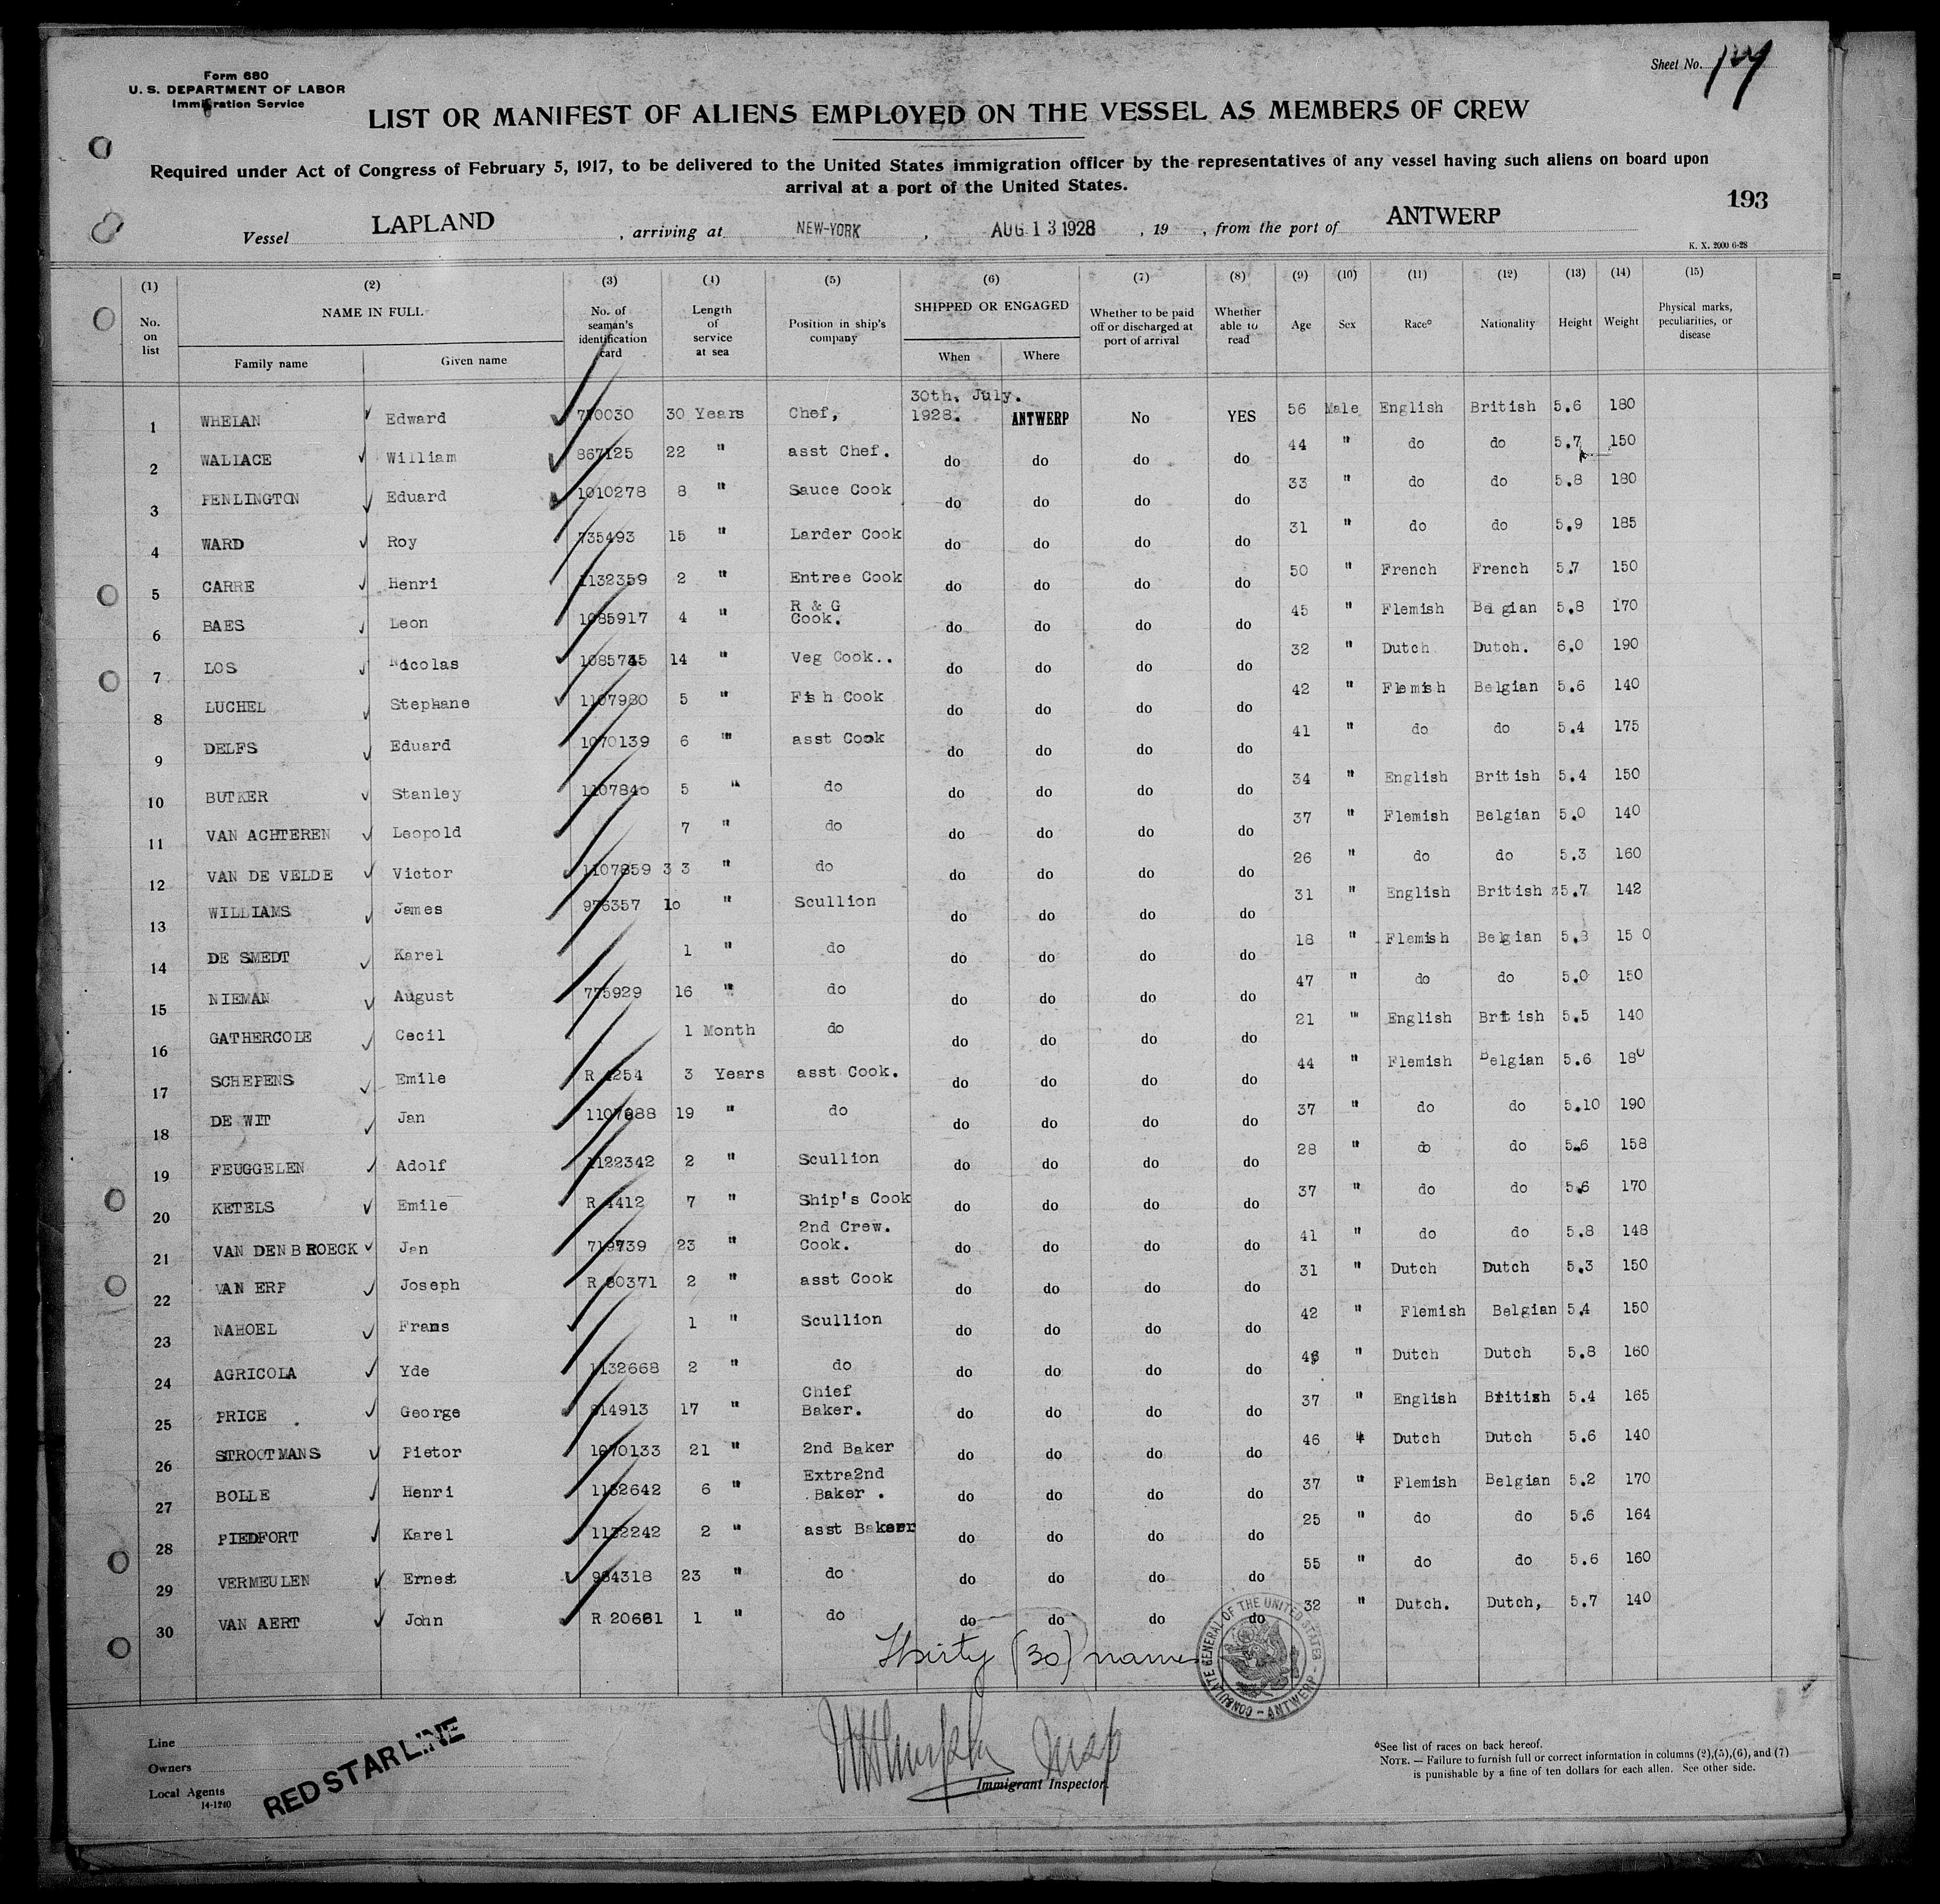 Form 680
U. S. DEPARTMENT OF LABOR
Immigration Service
Sheet No.
LIST OR MANIFEST OF ALIENS EMPLOYED ON THE VESSEL AS MEMBERS OF CREW
Required under Act of Congress of February 5, 1917, to be delivered to the United States immigration officer by the representatives of any vessel having such aliens on board upon
arrival at a port of the United States.
193
Vessel LAPLAND , arriving at NEW-YORK , AUG 13 1928 , 19 , from the port of ANTWERP
K. X. 2000 6-28
(1) (2) (3) (4) (5) (6) (7) (8) (9) (10) (11) (12) (13) (14) (15)
No. on list NAME IN FULL Family name Given name No. of seaman's identification card Length of service at sea Position in ship's company SHIPPED OR ENGAGED When Where Whether to be paid off or discharged at port of arrival Whether able to read Age Sex Race° Nationality Height Weight Physical marks, peculiarities, or disease
1 WHELAN Edward 770030 30 Years Chef, 30th. July. 1928. ANTWERP No YES 56 Male English British 5.6 180
2 WALLACE William 867125 22 " asst Chef. do do do do 44 " do do 5.7 150
3 PENLINGTON Eduard 1010278 8 " Sauce Cook do do do do 33 " do do 5.8 180
4 WARD Roy 735493 15 " Larder Cook do do do do 31 " do do 5.9 185
5 CARRE Henri 1132359 2 " Entree Cook do do do do 50 " French French 5.7 150
6 BAES Leon 1085917 4 " R & G Cook. do do do do 45 " Flemish Belgian 5.8 170
7 LOS Nicolas 1085745 14 " Veg Cook.. do do do do 32 " Dutch Dutch. 6.0 190
8 LUCHEL Stephane 1107980 5 " Fish Cook do do do do 42 " Flemish Belgian 5.6 140
9 DELFS Eduard 1070139 6 " asst Cook do do do do 41 " do do 5.4 175
10 BUTKER Stanley 1107840 5 " do do do do do 34 " English British 5.4 150
11 VAN ACHTEREN Leopold 7 " do do do do do 37 " Flemish Belgian 5.0 140
12 VAN DE VELDE Victor 1107859 3 3 " do do do do do 26 " do do 5.3 160
13 WILLIAMS James 976357 10 " Scullion do do do do 31 " English British 5.7 142
14 DE SMEDT Karel 1 " do do do do do 18 " Flemish Belgian 5.8 150
15 NIEMAN August 775929 16 " do do do do do 47 " do do 5.0 150
16 GATHERCOLE Cecil 1 Month do do do do do 21 " English British 5.5 140
17 SCHEPENS Emile R 4254 3 Years asst Cook. do do do do 44 " Flemish Belgian 5.6 180
18 DE WIT Jan 1107888 19 " do do do do do 37 " do do 5.10 190
19 FEUGGELEN Adolf 1122342 2 " Scullion do do do do 28 " do do 5.6 158
20 KETELS Emile R 4412 7 " Ship's Cook do do do do 37 " do do 5.6 170
21 VAN DENBROECK Jan 719739 23 " 2nd Crew. Cook. do do do do 41 " do do 5.8 148
22 VAN ERP Joseph R 80371 2 " asst Cook do do do do 31 " Dutch Dutch 5.3 150
23 NAHOEL Frans 1 " Scullion do do do do 42 " Flemish Belgian 5.4 150
24 AGRICOLA Yde 1132668 2 " do do do do do " Dutch Dutch 5.8 160
25 PRICE . George 814913 17 " Chief Baker. do do do do 37 " English British 5.4 165
26 STROOTMANS Pietor 1070133 21 " 2nd Baker do do do do 46 " Dutch Dutch 5.6 140
27 BOLLE Henri 1132642 6 " Extra2nd .Baker . do do do do 37 " Flemish Belgian 5.2 170
28 PIEDFORT Karel 1132242 2 " asst Bakerr do do do do 25 " do do 5.6 164
29 VERMEULEN Ernest 984318 23 " do do do do do 55 " do do 5.6 160
30 VAN AERT John R 20661 1 " do do do do do 32 " Dutch. Dutch, 5.7 140
Thirty (30) names
CONSULATE GENERAL OF THE UNITED STATES - ANTWERP -
Line
Owners
Local Agents
14-1240
RED STAR LINE
Immigrant Inspector.
°See list of races on back hereof.
NOTE. — Failure to furnish full or correct information in columns (2),(5),(6), and (7)
is punishable by a fine of ten dollars for each alien. See other side.